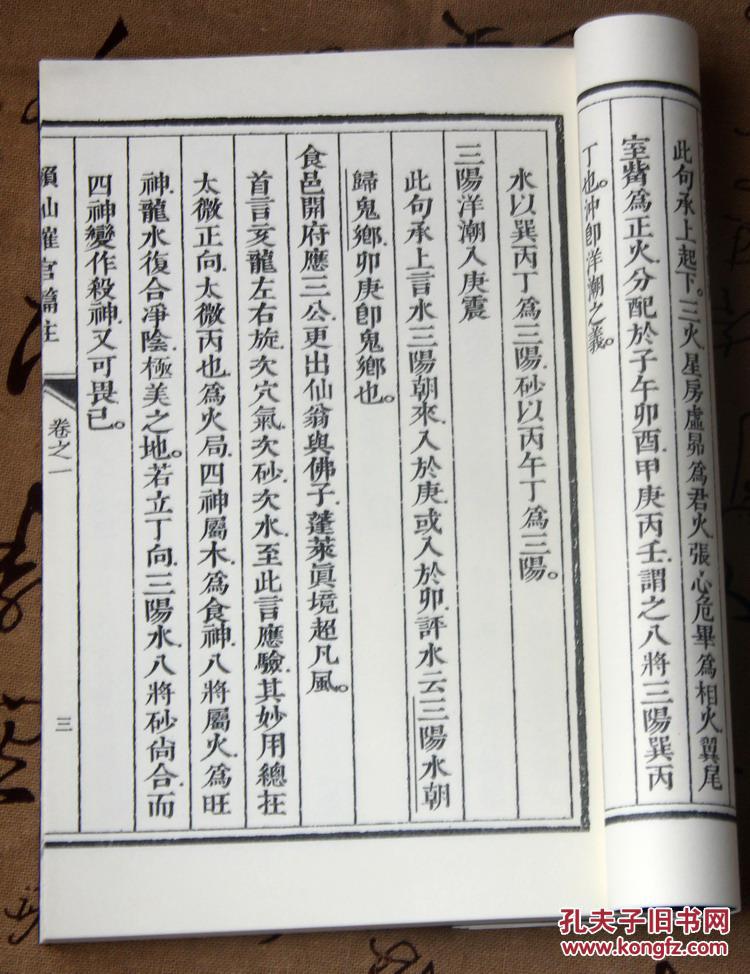 此句承上起下。三火、星房虛昴爲君火、張心危畢爲相火、翼尾
室觜爲正火、分配於子午卯酉、甲庚丙壬、謂之八將、三陽巽丙
丁也。沖卽洋潮之義。
水以巽丙丁爲三陽、砂以丙午丁爲三陽。
三陽洋潮入庚震
此句承上言水三陽朝來、入於庚、或入於卯、評水云三陽水朝
歸鬼鄉、卯庚卽鬼鄉也。
食邑開府應三公、更出仙翁與佛子、蓬萊眞境超凡風。
首言亥龍左右旋、次穴氣、次砂、次水、至此言應驗、其妙用總在
太微正向、太微丙也、爲火局、四神屬木、爲食神、八將屬火、爲旺
神、龍水復合凈陰、極美之地。若立丁向、三陽水、八將砂尙合、而
四神變作殺神、又可畏已。
賴仙催官篇注
卷之一
三
孔夫子旧书网
www.kongfz.com